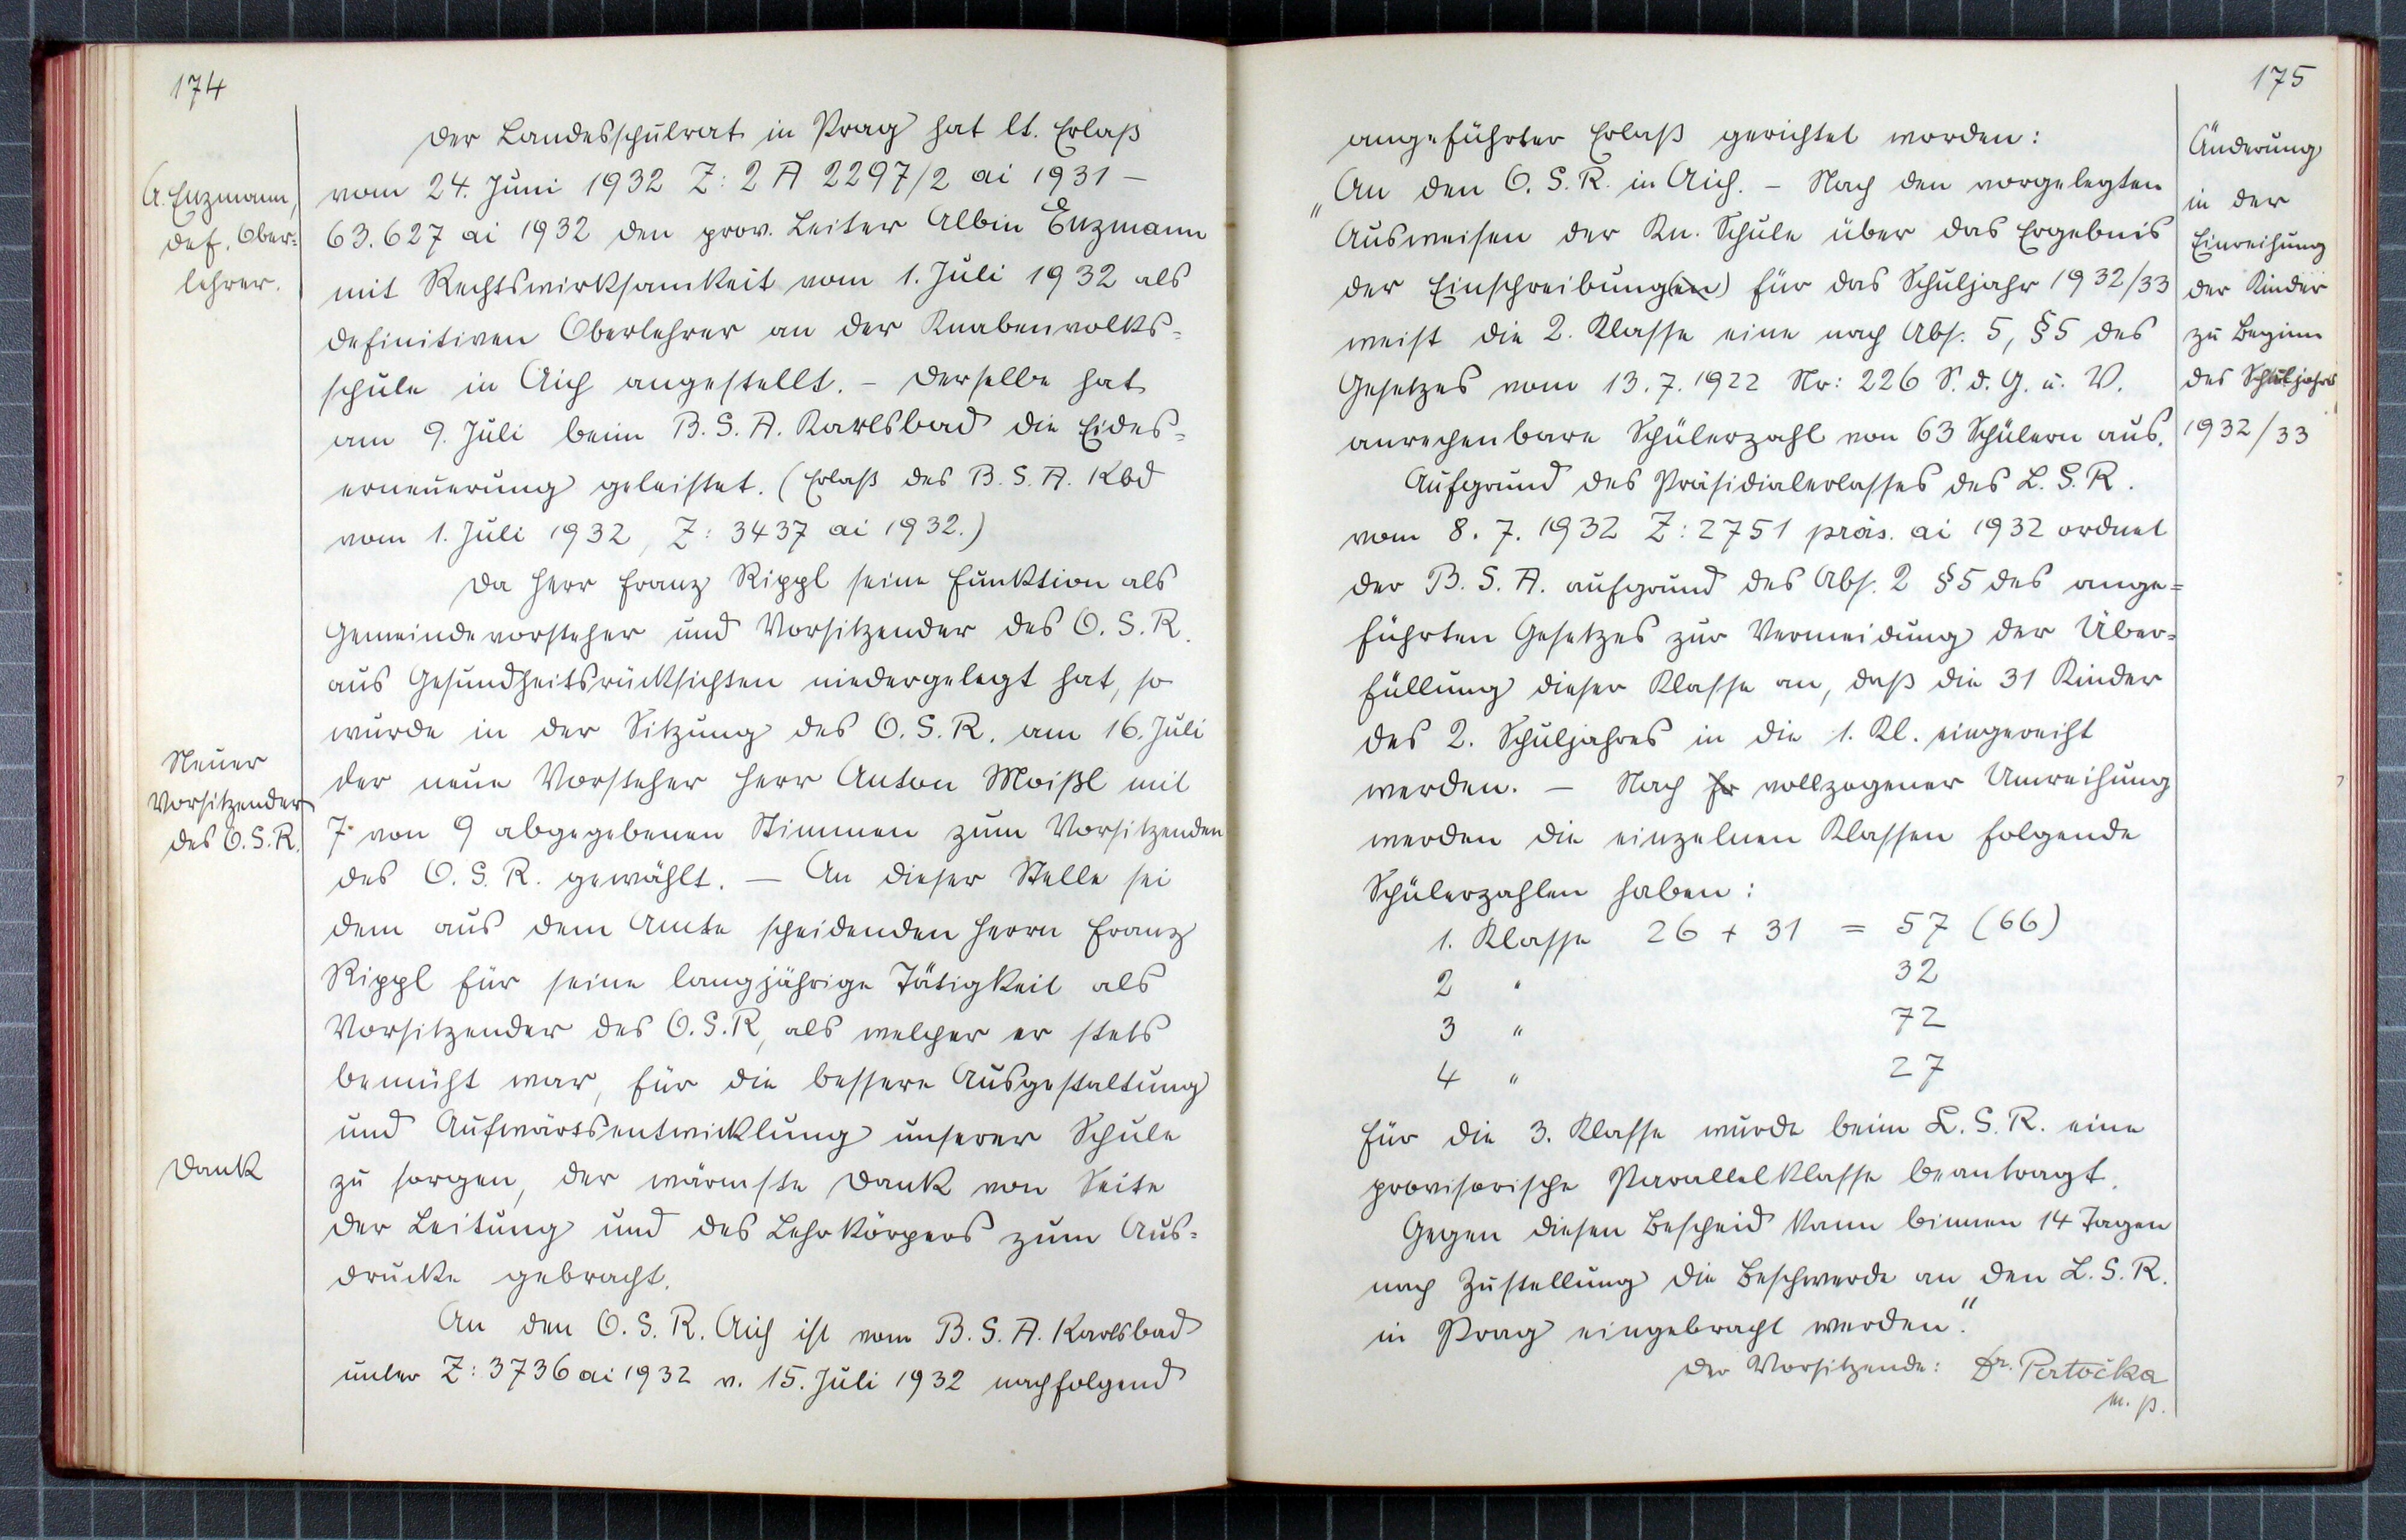 174
A. Enzmann,
def. Ober=
lehrer.
Der Landesschulrat in Prag hat lt. Erlaß
vom 24. Juni 1932 Z: 2 A 2297/2 ai 1931 –
63.627 ai 1932 den prov. Leiter Albin Enzmann
mit Rechtswirksamkeit vom 1. Juli 1932 als
definitiven Oberlehrer an der Knabenvolks=
schule in Aich angestellt. – Derselbe hat
am 9. Juli beim B. S. A. Karlsbad die Eides=
erneuerung geleistet. (Erlaß des B. S. A. Kbd
vom 1. Juli 1932, Z: 3437 ai 1932.)
Da Herr Franz Rippl seine Funktion als
Gemeindevorsteher und Vorsitzender des O. S. R.
aus Gesundheitsrücksichten niedergelegt hat, so
wurde in der Sitzung des O. S. R. am 16. Juli
Neuer
Vorsitzender
des O. S. R.
der neue Vorsteher Herr Anton Moißl mit
7 von 9 abgegebenen Stimmen zum Vorsitzenden
des O. S. R. gewählt. – An dieser Stelle sei
dem aus dem Amte scheidenden Herrn Franz
Rippl für seine langjährige Tätigkeit als
Vorsitzender des O. S. R, als welcher er stets
bemüht war, für die bessere Ausgestaltung
und Aufwärtsentwicklung unserer Schule
Dank
zu sorgen, der wärmste Dank von Seite
der Leitung und des Lehrkörpers zum Aus=
drucke gebracht.
An den O. S. R. Aich ist vom B. S. A. Karlsbad
unter Z: 3736 ai 1932 v. 15. Juli 1932 nachfolgend
175
angeführter Erlaß gerichtet worden:
„An den O. S. R. in Aich. – Nach den vorgelegten
Ausweisen der Kn. Schule über das Ergebnis
der Einschreibung(en) für das Schuljahr 1932/33
weist die 2. Klasse eine nach Abs. 5, §5 des
Gesetzes vom 13. 7. 1922 Nr: 226 S. d. G. u. V.
anrechenbare Schülerzahl von 63 Schülern aus.
Änderung
in der
Einreihung
der Kinder
zu Beginn
des Schuljahrs
1932/33
Aufgrund des Präsidialerlasses des L. S. R.
vom 8. 7. 1932 Z: 2751 präs. ai 1932 ordnet
der B. S. A. aufgrund des Abs. 2 §5 des ange=
führten Gesetzes zur Vermeidung der Über=
füllung dieser Klasse an, daß die 31 Kinder
des 2. Schuljahres in die 1. Kl. eingereiht
werden. – Nach vollzogener Umreihung
werden die einzelnen Klassen folgende
Schülerzahlen haben:
1. Klasse 26 + 31 = 57 (66)
2 " 32
3 " 72
4 " 27
Für die 3. Klasse wurde beim L. S. R. eine
provisorische Parallelklasse beantragt.
Gegen diesen Bescheid kann binnen 14 Tagen
nach Zustellung die Beschwerde an den L. S. R.
in Prag eingebracht werden."
Der Vorsitzende: Dr. Pertočka
m. p.